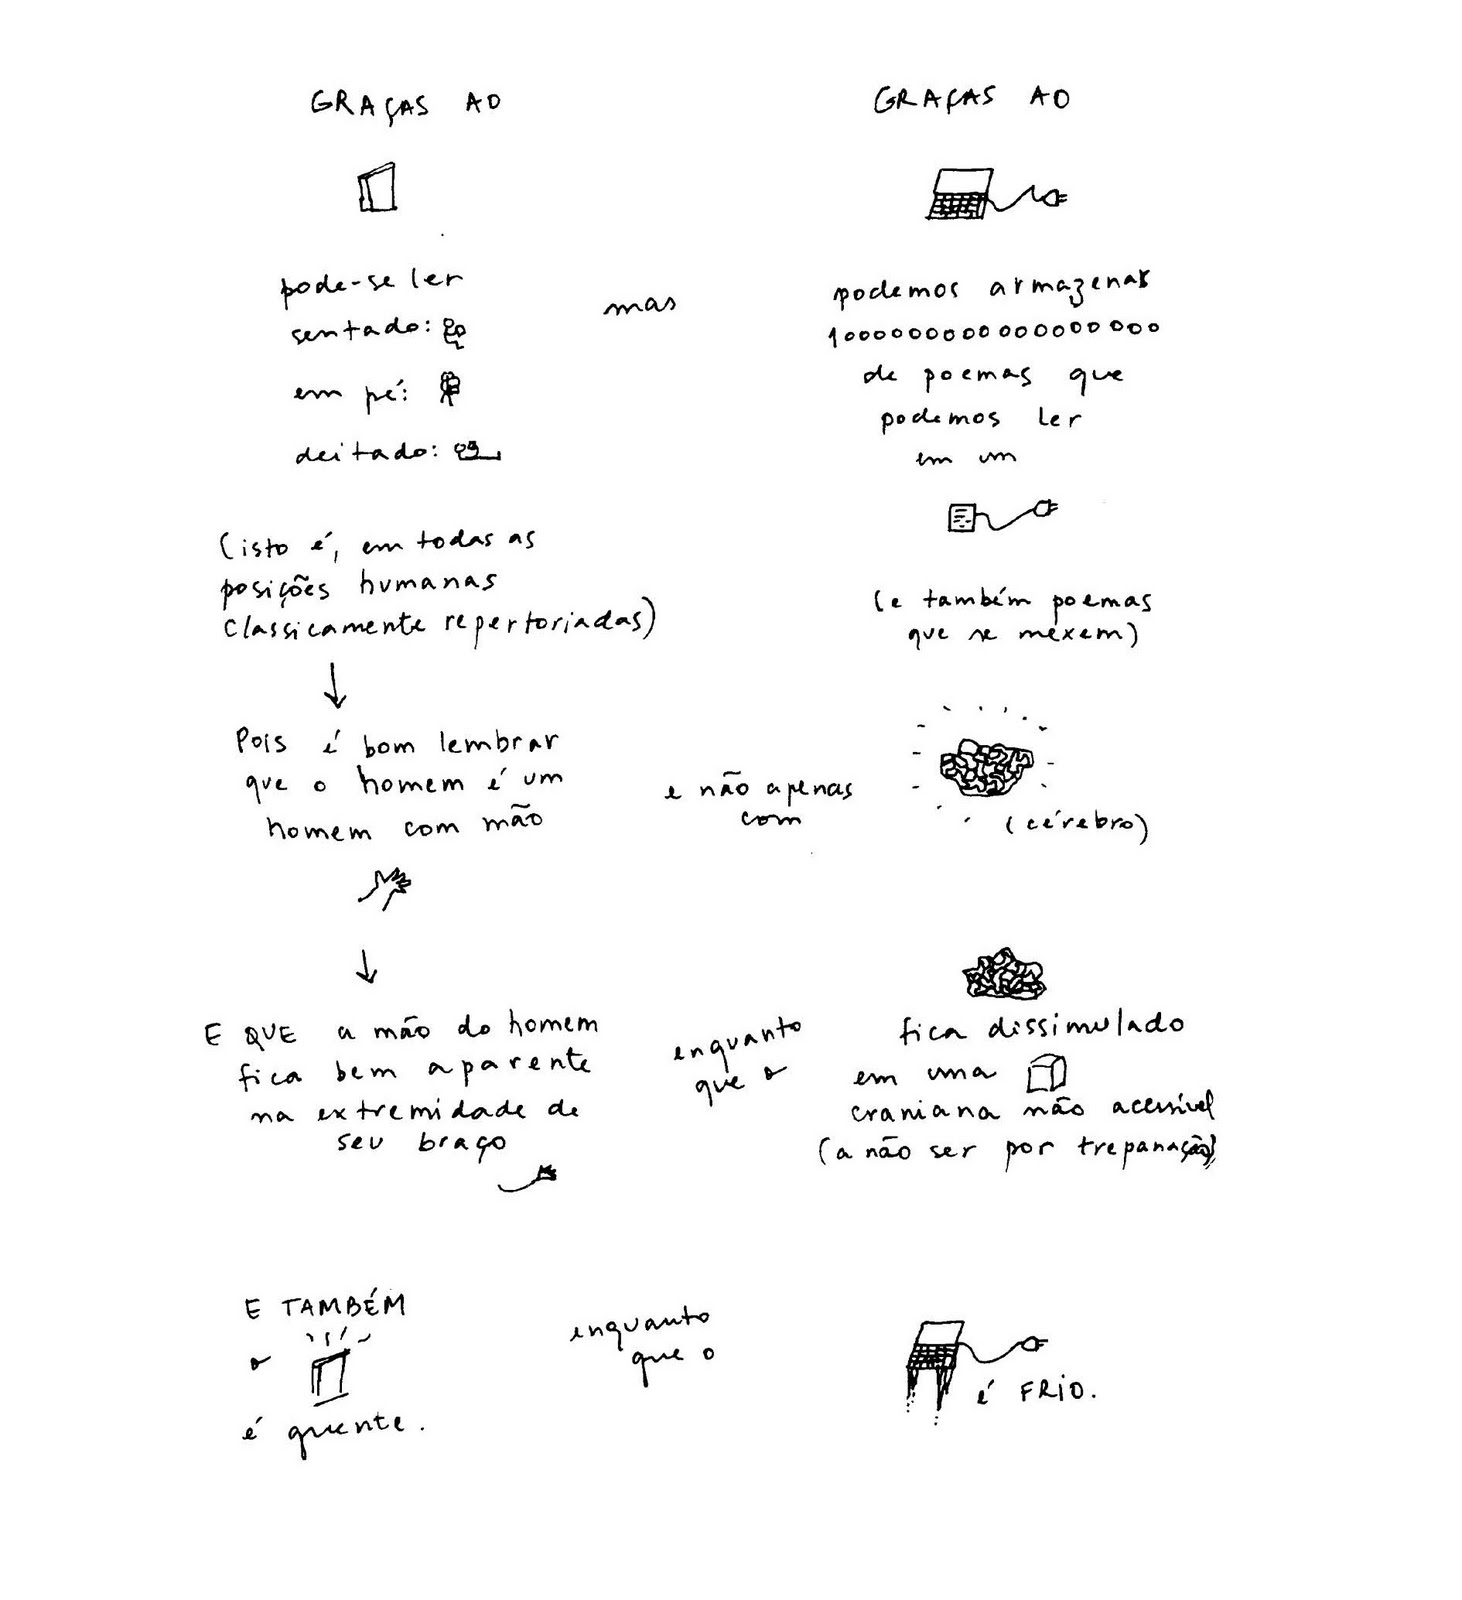 GRAÇAS AO
pode-se ler
sentado:
em pé:
deitado:
(isto é, em todas as
posições humanas
classicamente repertoriadas)
mas
GRAÇAS AO
podemos armazenar
10000000000000000000
de poemas que
podemos ler
em um
(e também poemas
que se mexem)
Pois é bom lembrar
que o homem é um
homem com mão
e não apenas
com
(cérebro)
E QUE a mão do homem
fica bem aparente
na extremidade de
seu braço
enquanto
que o
fica dissimulado
em uma
craniana não acessível
(a não ser por trepanação)
E TAMBÉM
o
é quente.
enquanto
que o
é FRIO.